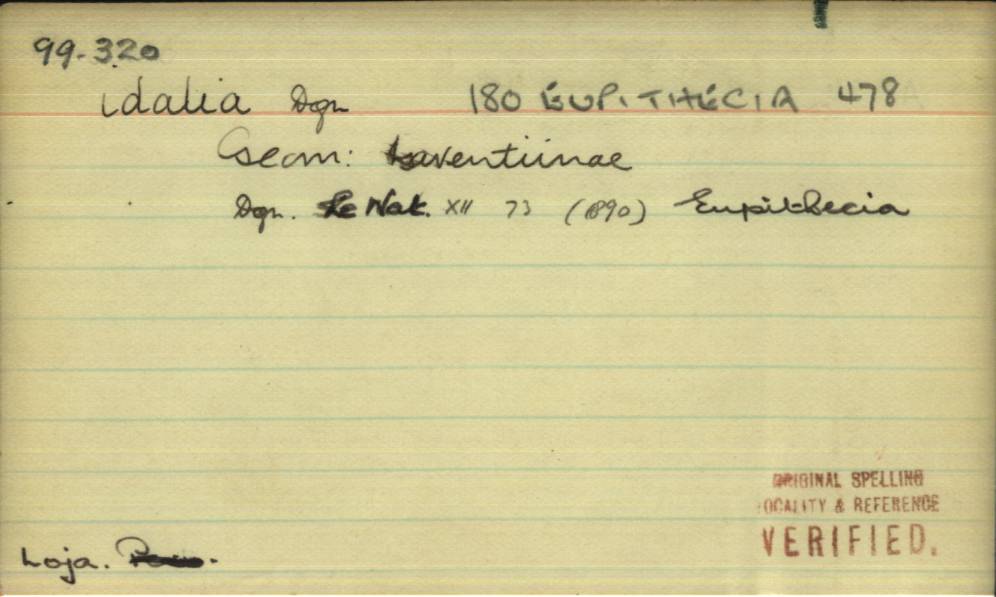 99.320
idalia Dgn 180 EUPITHÉCIA 478
Geom: Larentiinae
Dgn. Le Nat. XII 73 (1890) Eupithecia
ORIGINAL SPELLING
LOCALITY & REFERENCE
VERIFIED.
Loja.